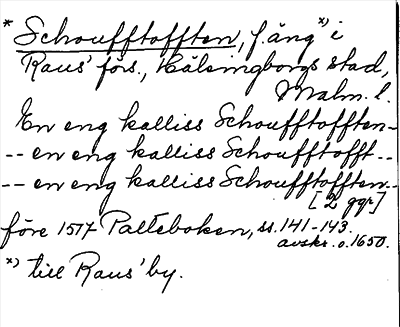 * Schoufftofften, f. äng *) i
Raus' förs., Hälsingborgs stad,
Malm. l.
En eng kalliss Schoufftofften--
-- en eng kalliss Schoufftofft...
-- en eng kalliss Schoufftofften...
[2 ggr]
före 1517 Palteboken, ss. 141-143.
avskr. o. 1650.
*) till Raus' by.